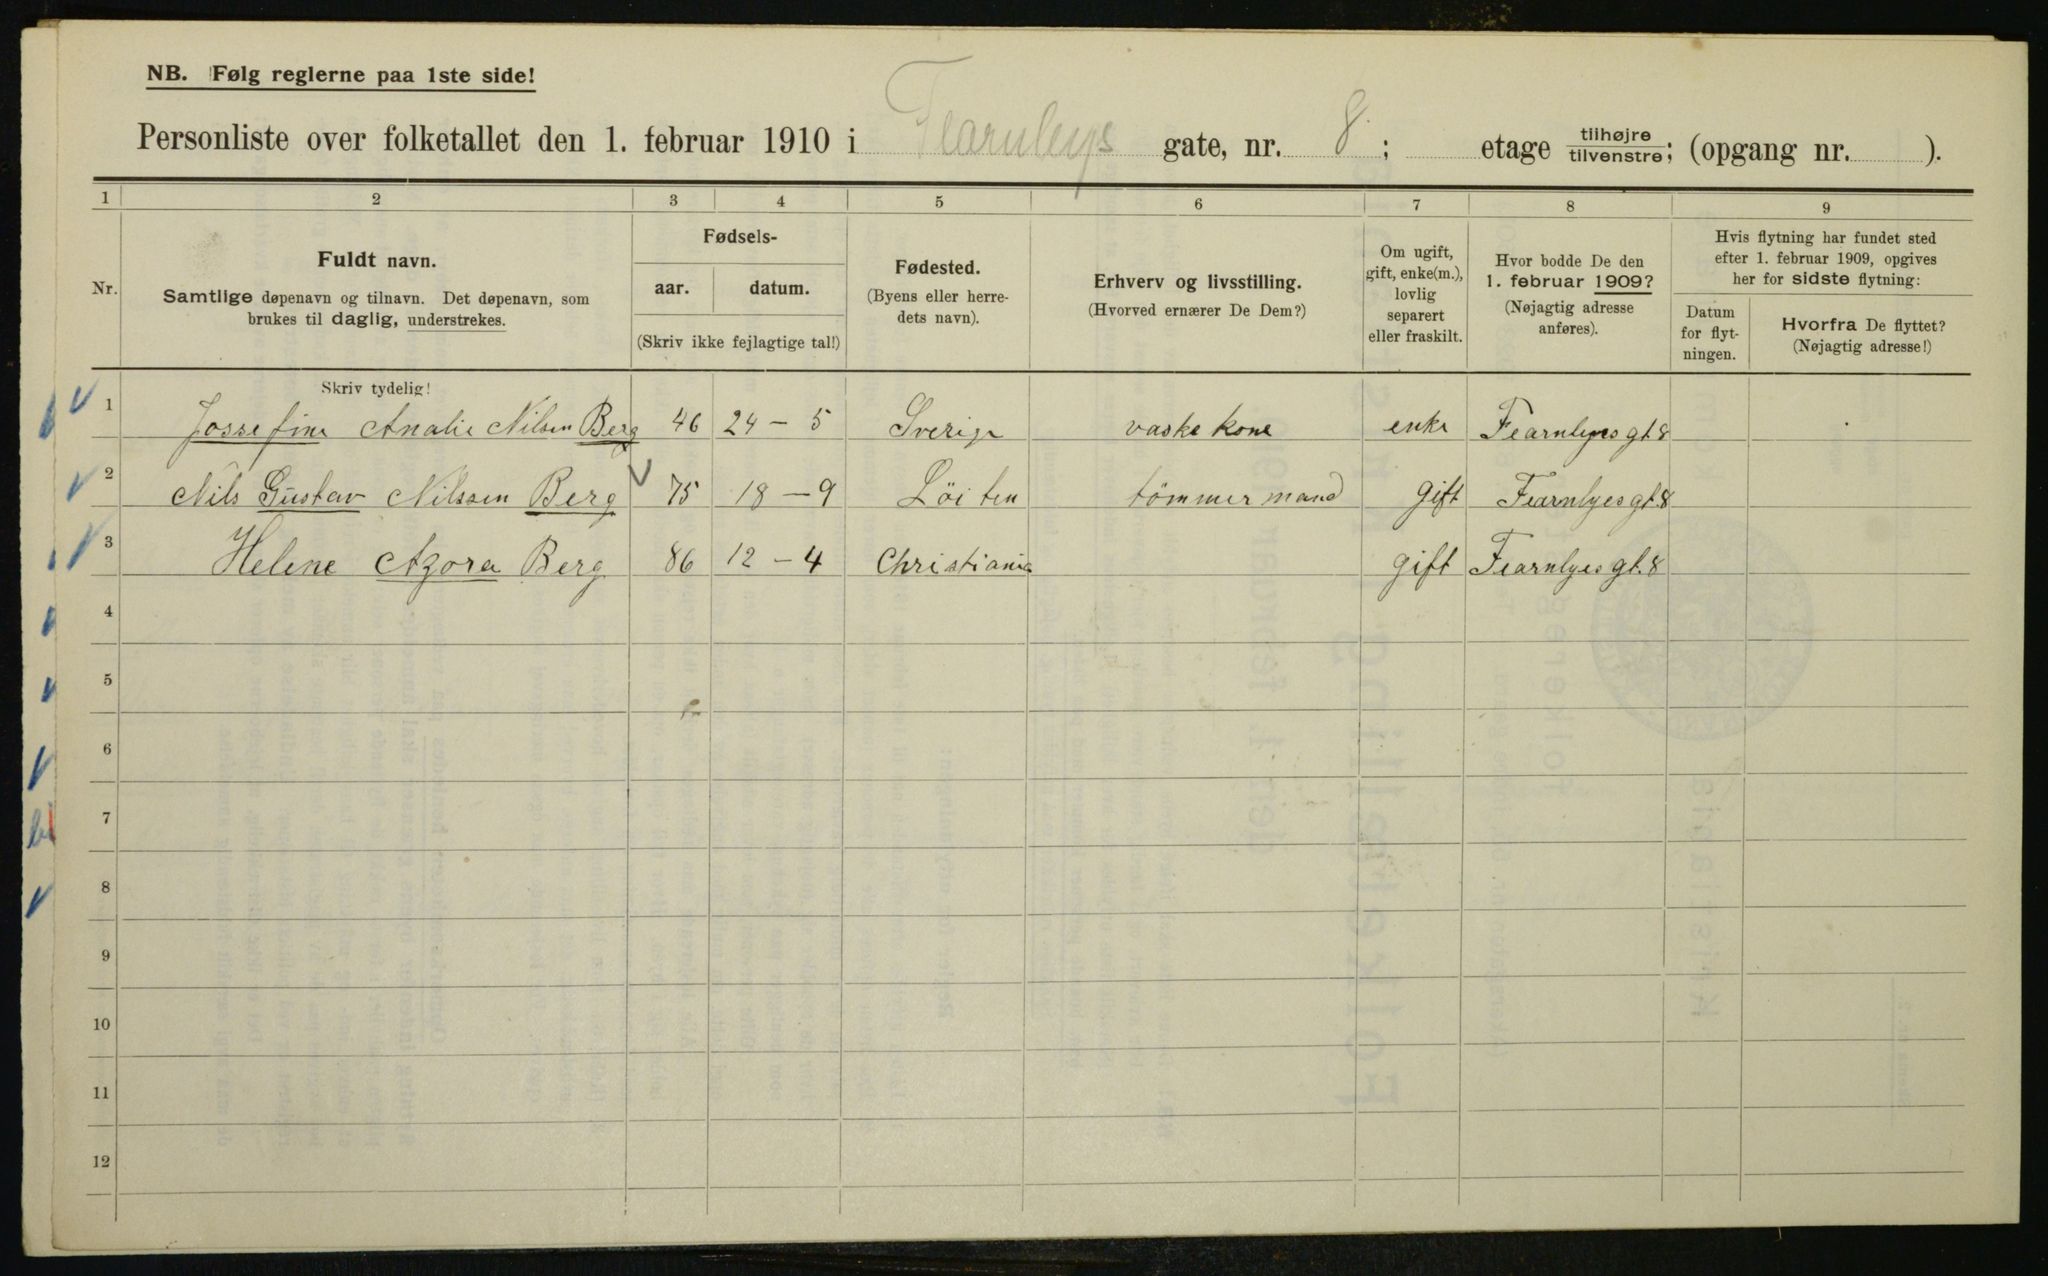 NB. Følg reglerne paa 1ste side!
Personliste over folketallet den 1. februar 1910 i Fearnleys gate, nr. 8; etage tilhøjre/tilvenstre; (opgang nr. ).
1 2 3 4 5 6 7 8 9
Nr.
Fuldt navn.
Samtlige døpenavn og tilnavn. Det døpenavn, som
brukes til daglig, understrekes.
Fødsels-
aar. datum.
(Skriv ikke fejlagtige tal!)
Fødested.
(Byens eller herre-
dets navn).
Erhverv og livsstilling.
(Hvorved ernærer De Dem?)
Om ugift,
gift, enke(m.),
lovlig
separert
eller fraskilt.
Hvor bodde De den
1. februar 1909?
(Nøjagtig adresse
anføres).
Hvis flytning har fundet sted
efter 1. februar 1909, opgives
her for sidste flytning:
Datum
for flyt-
ningen.
Hvorfra De flyttet?
(Nøjagtig adresse!)
Skriv tydelig!
1 Jossefine Analie Nilsen Berg 46 24 - 5 Sverige vaske kone enke Fearnlyes gt. 8
2 Nils Gustav Nilssen Berg 75 18 - 9 Löiten tömmermand gift Fearnlyes gt. 8
3 Helene Azora Berg 86 12 - 4 Christiania gift Fearnlyes gt. 8
4
5
6
7
8
9
10
11
12